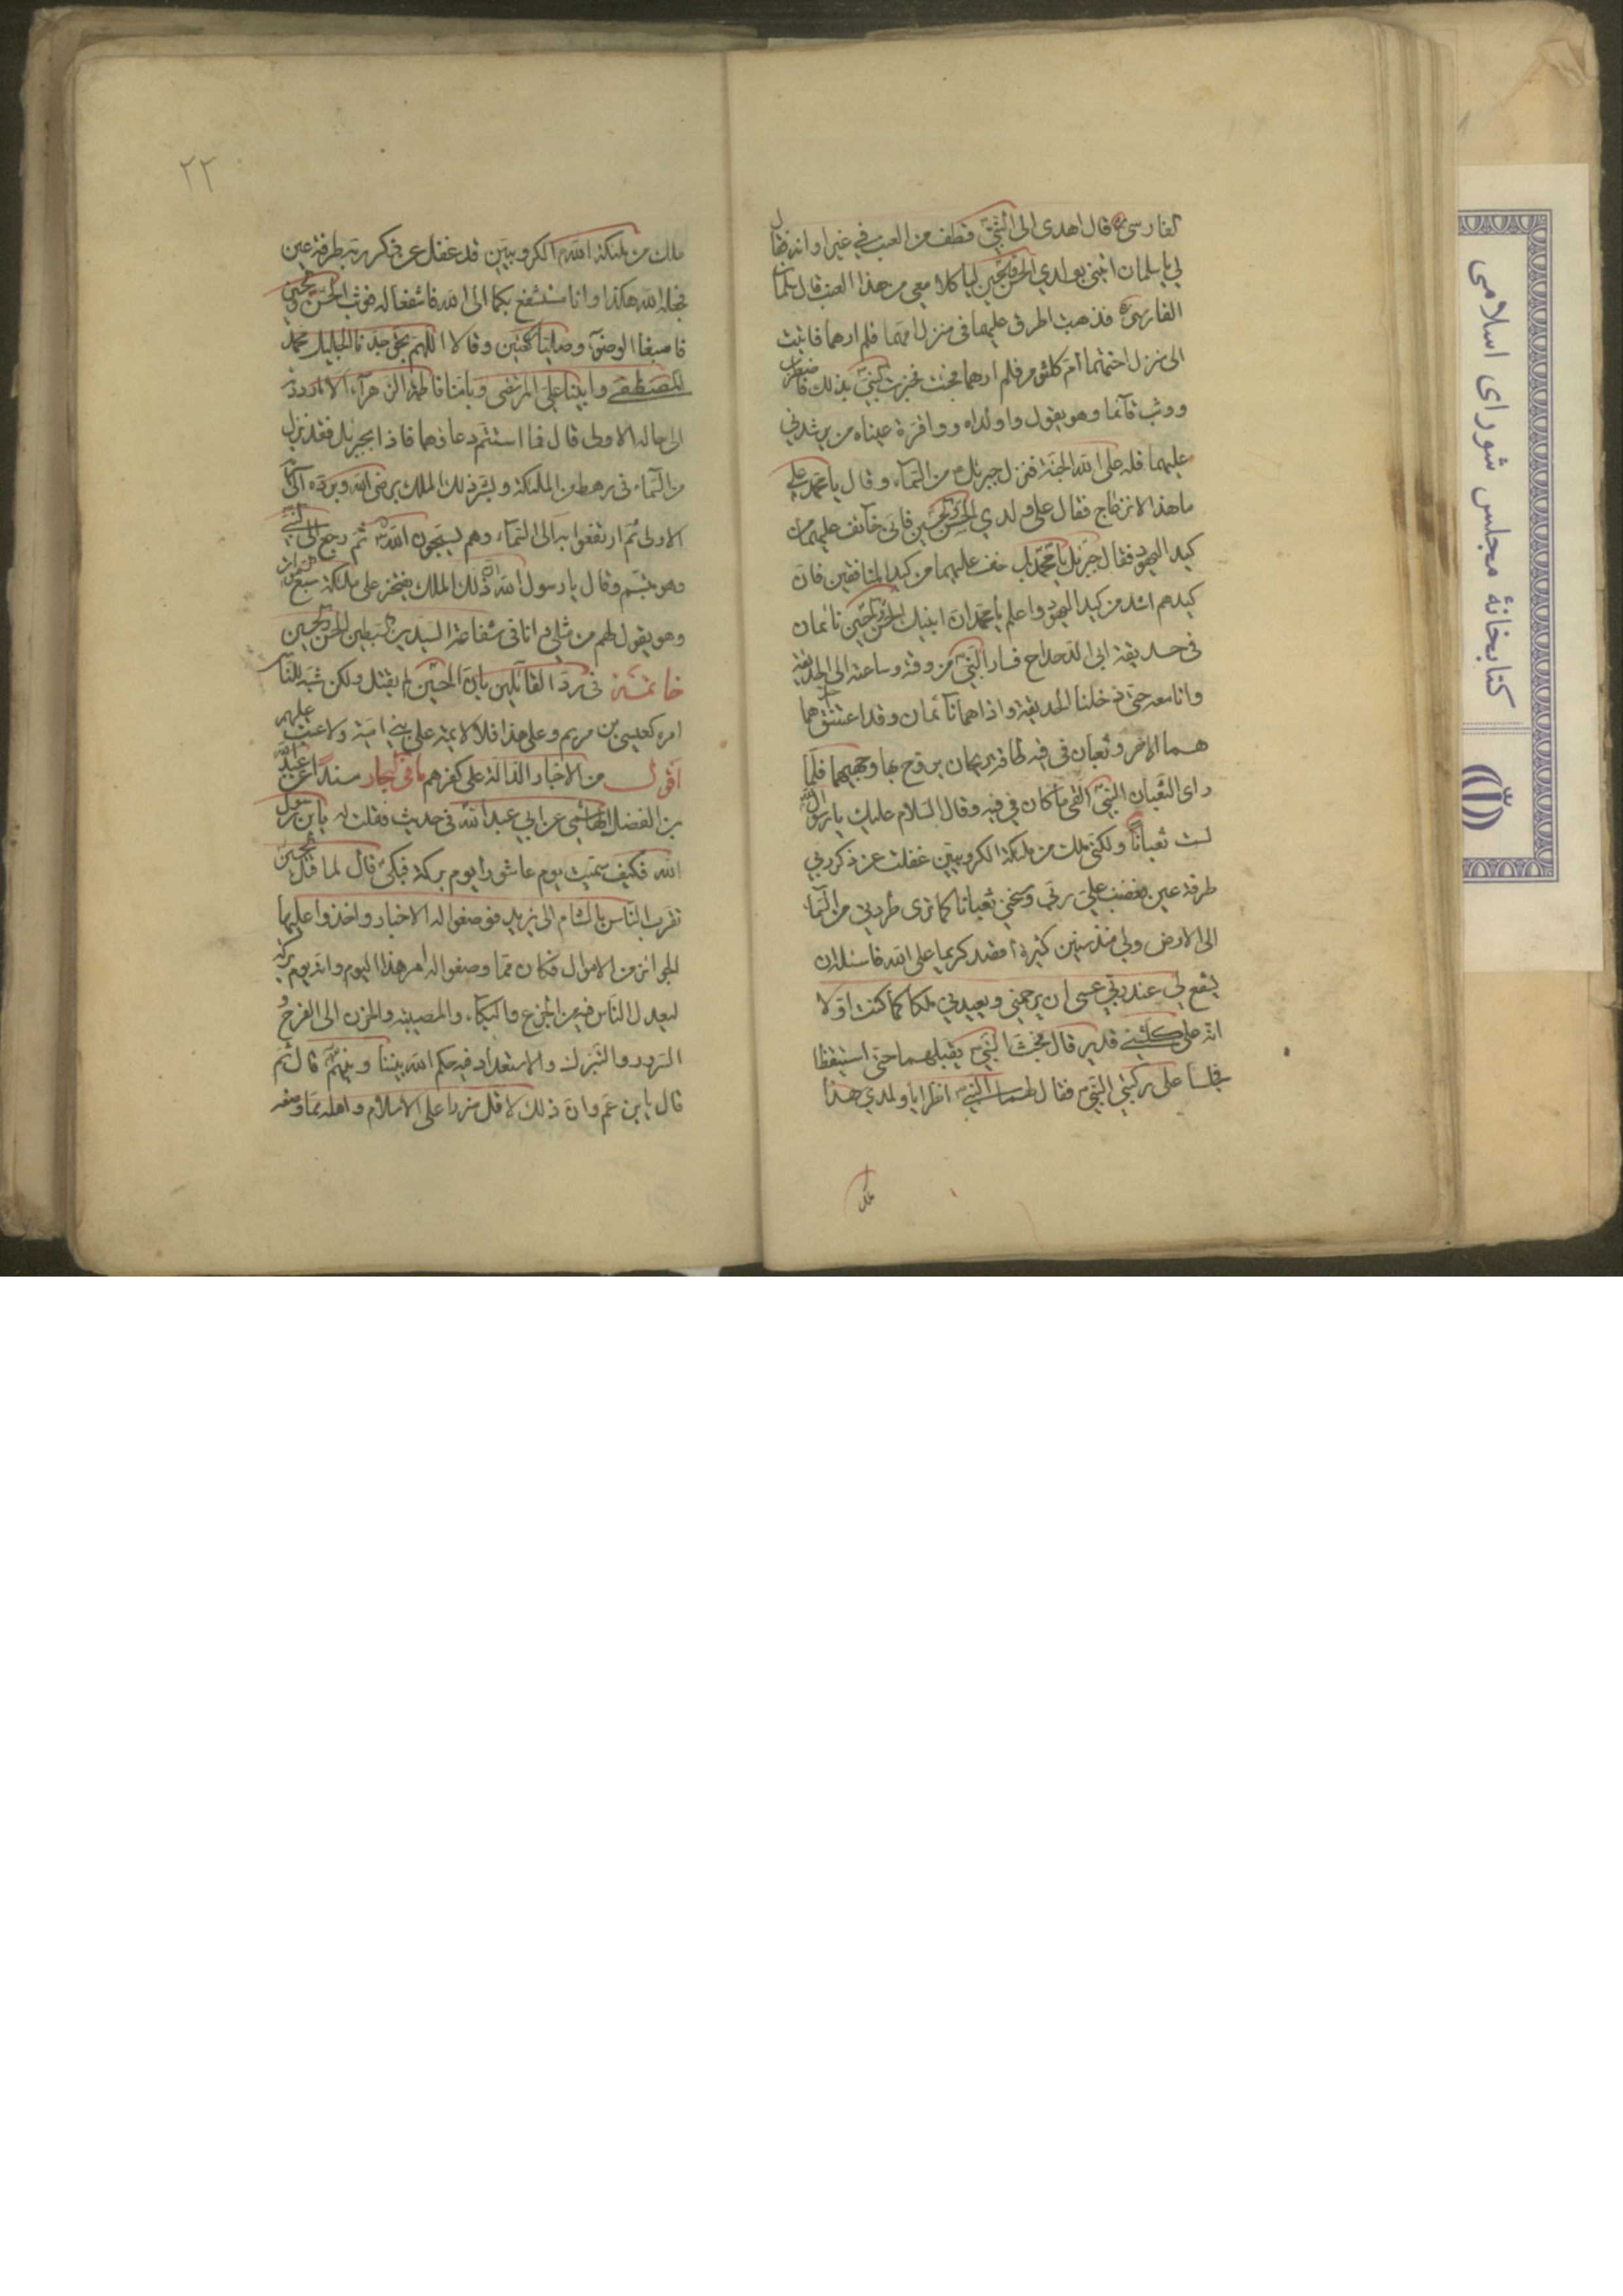 الفارسی ره قال اهدی الی النبی ص قطف من العنب فی غیر اوانه فقال
لی یا سلمان ائتنی بولدی الحسن والحسین لیاکلا معی من هذا العنب قال سلمان
الفارسی ره فذهبت اطرق علیهما فی منزل امهما فلم ارهما فاتیت
الی منزل اختهما ام کلثوم فلم ارهما فجئت فخبرت النبی ص بذلک فاضطرب
ووثب قآئما وهو یقول وا ولداه ووا قرة عیناه من یرشدنی
علیهما فله علی الله الجنة فنزل جبرئیل من السمآء وقال یا محمد علی
ما هذا الانزعاج فقال علی ولدی الحسن والحسین فانی خآئف علیهما من
کید الیهود فقال جبرئیل یا محمد بل خف علیهما من کید المنافقین فان
کیدهم اشد من کید الیهود واعلم یا محمد ان ابنیک الحسن والحسین نائمان
فی حدیقة ابی الدحداح فسار النبی ص من وقته وساعته الی الحدیقة
وانا معه حتی دخلنا الحدیقة واذا هما نآئمان وقد اعتنق احدهما
هما الاخر وثعبان فی فیه طاقة ریحان یروح بها وجهیهما فلما
رای الثعبان النبی ص القی ما کان فی فیه وقال السلام علیک یا رسول الله
لست ثعباناً ولکنی ملک من ملئکة الکروبیین غفلت عن ذکر ربی
طرفة عین فغضب علی ربی ومسخنی ثعبانا کما تری وطردنی من السمآء
الی الارض ولی منذ سنین کثیرة اقصد کریما علی الله فاسئله ان
یشفع لی عند ربی عسی ان یرحمنی ویعیدنی ملکا کما کنت اولا
انه علی کل شیء قدیر قال فجثا النبی ص یقبلهما حتی استیقظا
فجلسا علی رکبتی النبی ص فقال لهما النبی ص انظرا یا ولدی هذا
ملک
۲۲
ملک من ملئکة الله الکروبیین قد غفل عن ذکر ربه طرفة عین
فجعله الله هکذا وانا مستشفع بکما الی الله فاشفعا له فوثب الحسن والحسین
فاسبغا الوضوء وصلیا رکعتین وقالا اللهم بحق جدنا الجلیل محمد
المصطفی وابینا علی المرتضی وبامنا فاطمة الزهرآء الا ما رددته
الی حاله الاولی قال فما استتم دعاؤهما فاذا بجبرئیل قد نزل
من السمآء فی رهط من الملئکة وبشر ذلک الملک برضی الله وبرده الی
الاولی ثم ارتفعوا به الی السمآء وهم یسبحون الله ثم رجع الی النبی
وهو یتبسم وقال یا رسول الله ان ذلک الملک یفتخر علی ملئکة سبع السموات
وهو یقول لهم من مثلی وانا فی شفاعة السیدین السبطین الحسن والحسین
خاتمة فی رد القآئلین بان الحسین لم یقتل ولکن شبه للناس
امره کعیسی بن مریم وعلی هذا فلا لائمة علی بنی امیة ولا عتب علیهم
اقول من الاخبار الدالة علی کفرهم ما فی البحار مسنداً عن عبدالله
بن الفضل الهاشمی عن ابی عبدالله فی حدیث فقلت له یا بن رسول
الله فکیف سمیت یوم عاشورا یوم برکة فبکی ع قال لما قتل الحسین
تقرب الناس بالشام الی یزید فوضعوا له الاخبار واخذوا علیها
الجوائز من الاموال فکان مما وضعوا له امر هذا الیوم وانه یوم برکة
لیعدل الناس فیه من الجزع والبکآء والمصیبة والحزن الی الفرح و
السرور والتبرک والاستعداد فیه حکم الله بیننا وبینهم قال ثم
قال یا بن عم وان ذلک لاقل ضررا علی الاسلام واهله مما وضعه
کتابخانهٔ مجلس شورای اسلامی